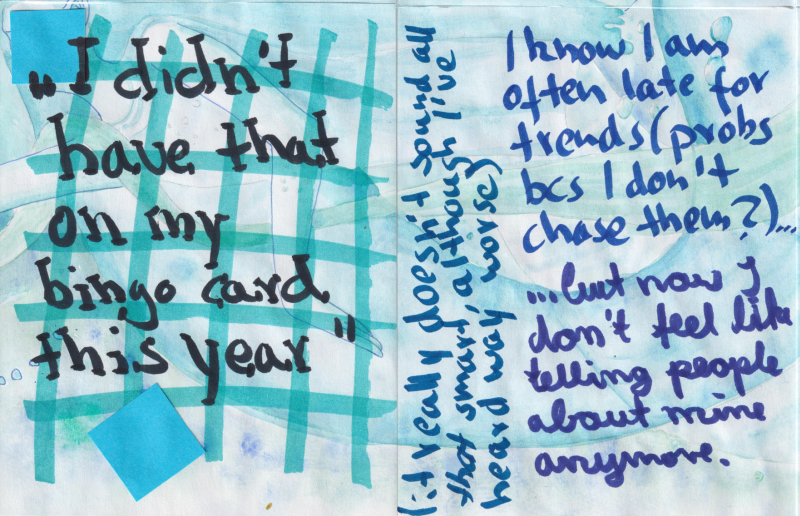 „I didn't
have that
on my
bingo card
this year"
(it really doesn't sound all
that smart, although I've
heard way worse)
I know I am
often late for
trends (probs
bcs I don't
chase them?)...
...but now I
don't feel like
telling people
about mine
anymore.